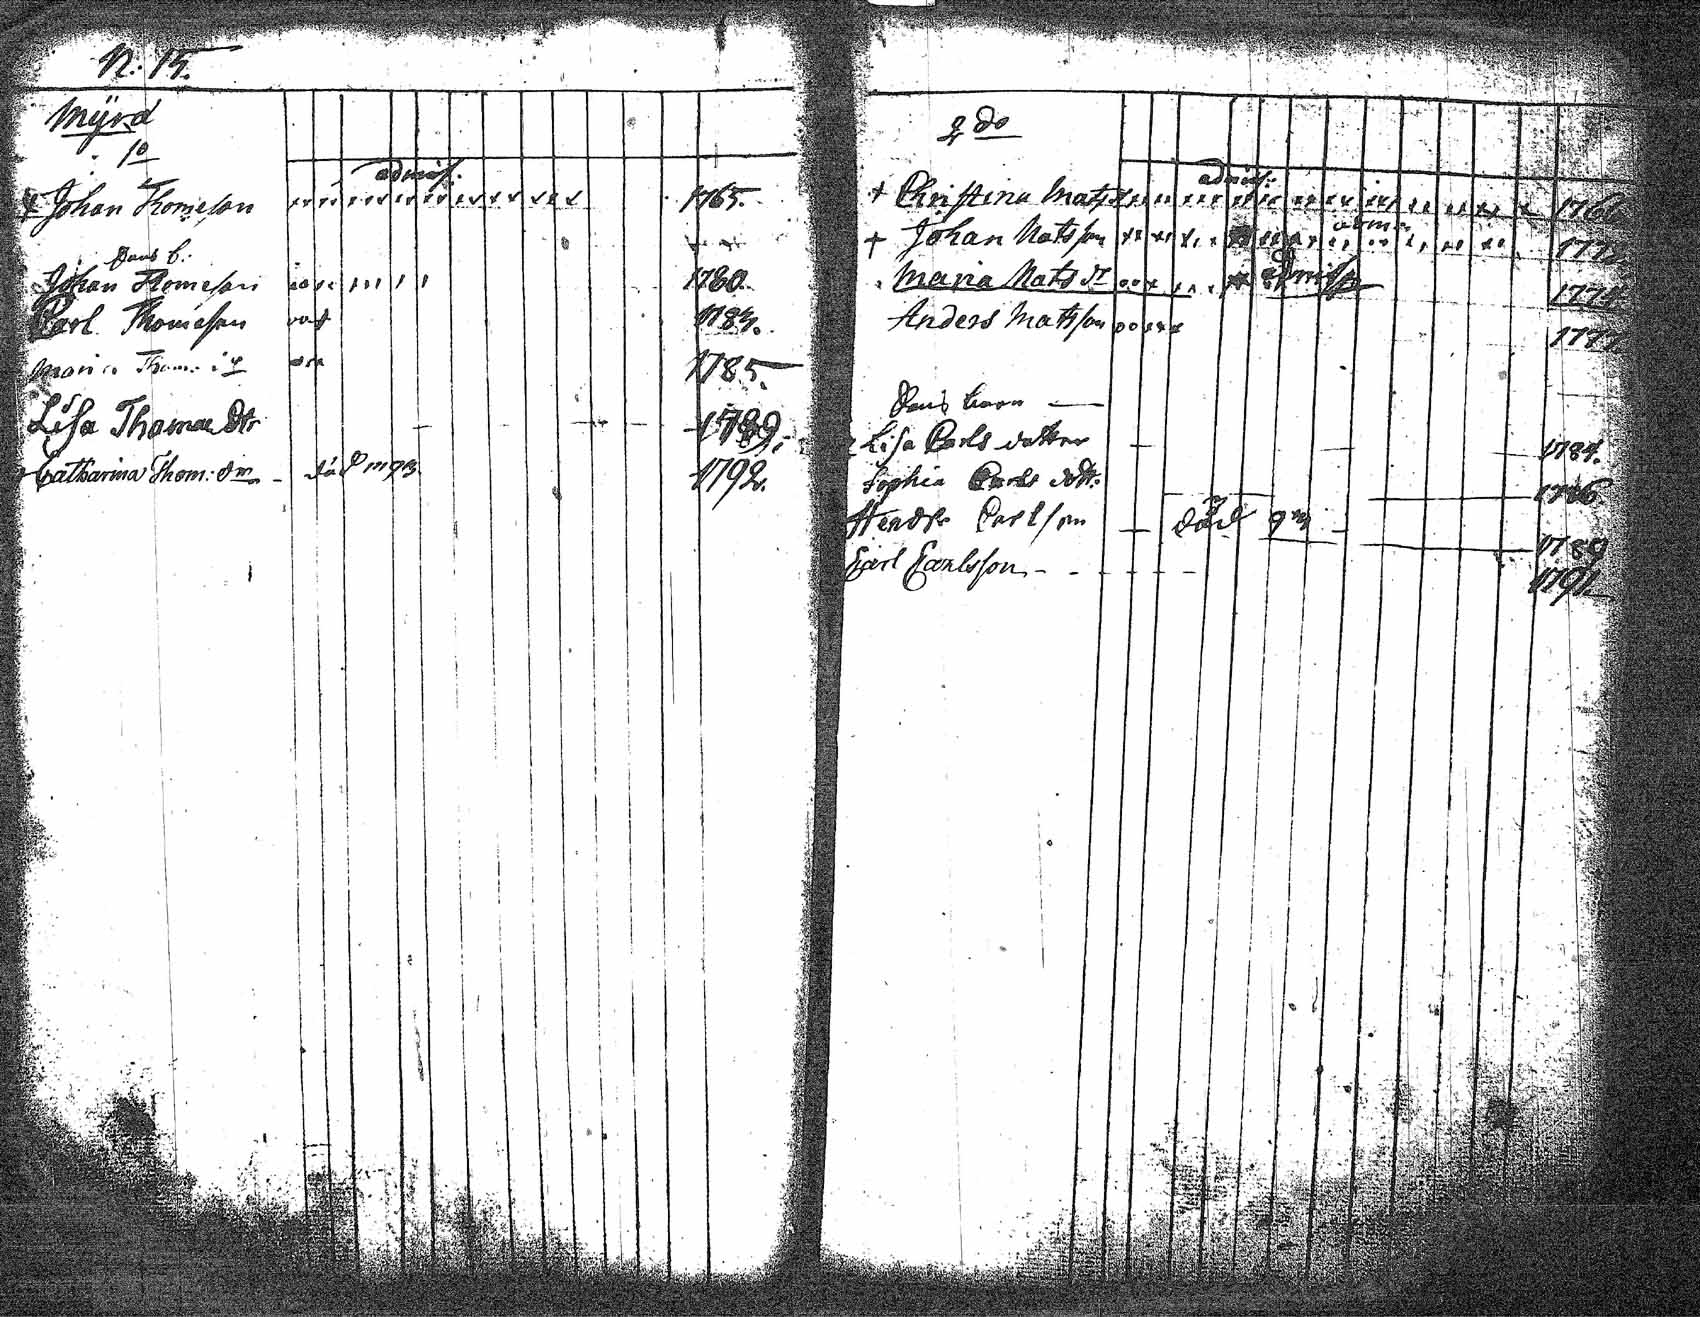 N: 15.
Mÿrd
1o
admis:
Johan Thomeson 1765.
Dess b:
Johan Thomeson 1780.
Carl Thomeson 1783.
Maria Thom: 1785.
Lisa Thomae Dtr 1789.
Catharina Thom: dr död 1793. 1792.
2 do
admis:
+ Christina Mats
+ Johan Matsson
Maria Mats dr admiss 1774
Anders Matsson 1777
Dess barn
Lisa Carls dotter 1784.
Sophia Carls dottr: 1786
Hendr Carlsson död 1789
Carl Carlsson 1791.